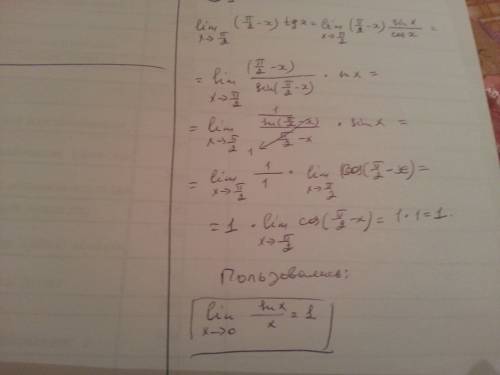 lim x→π/2 (π/2 - x) tg x = lim x→π/2 (π/2 - x) sin x / cos x =
= lim x→π/2 (π/2 - x) / sin(π/2 - x) · sin x =
= lim x→π/2 1 / (sin(π/2 - x) / (π/2 - x)) · sin x =
= lim x→π/2 1/1 · lim x→π/2 cos(π/2 - x) =
= 1 · lim x→π/2 cos(π/2 - x) = 1·1 = 1.
Пользовались:
lim x→0 sin x / x = 1